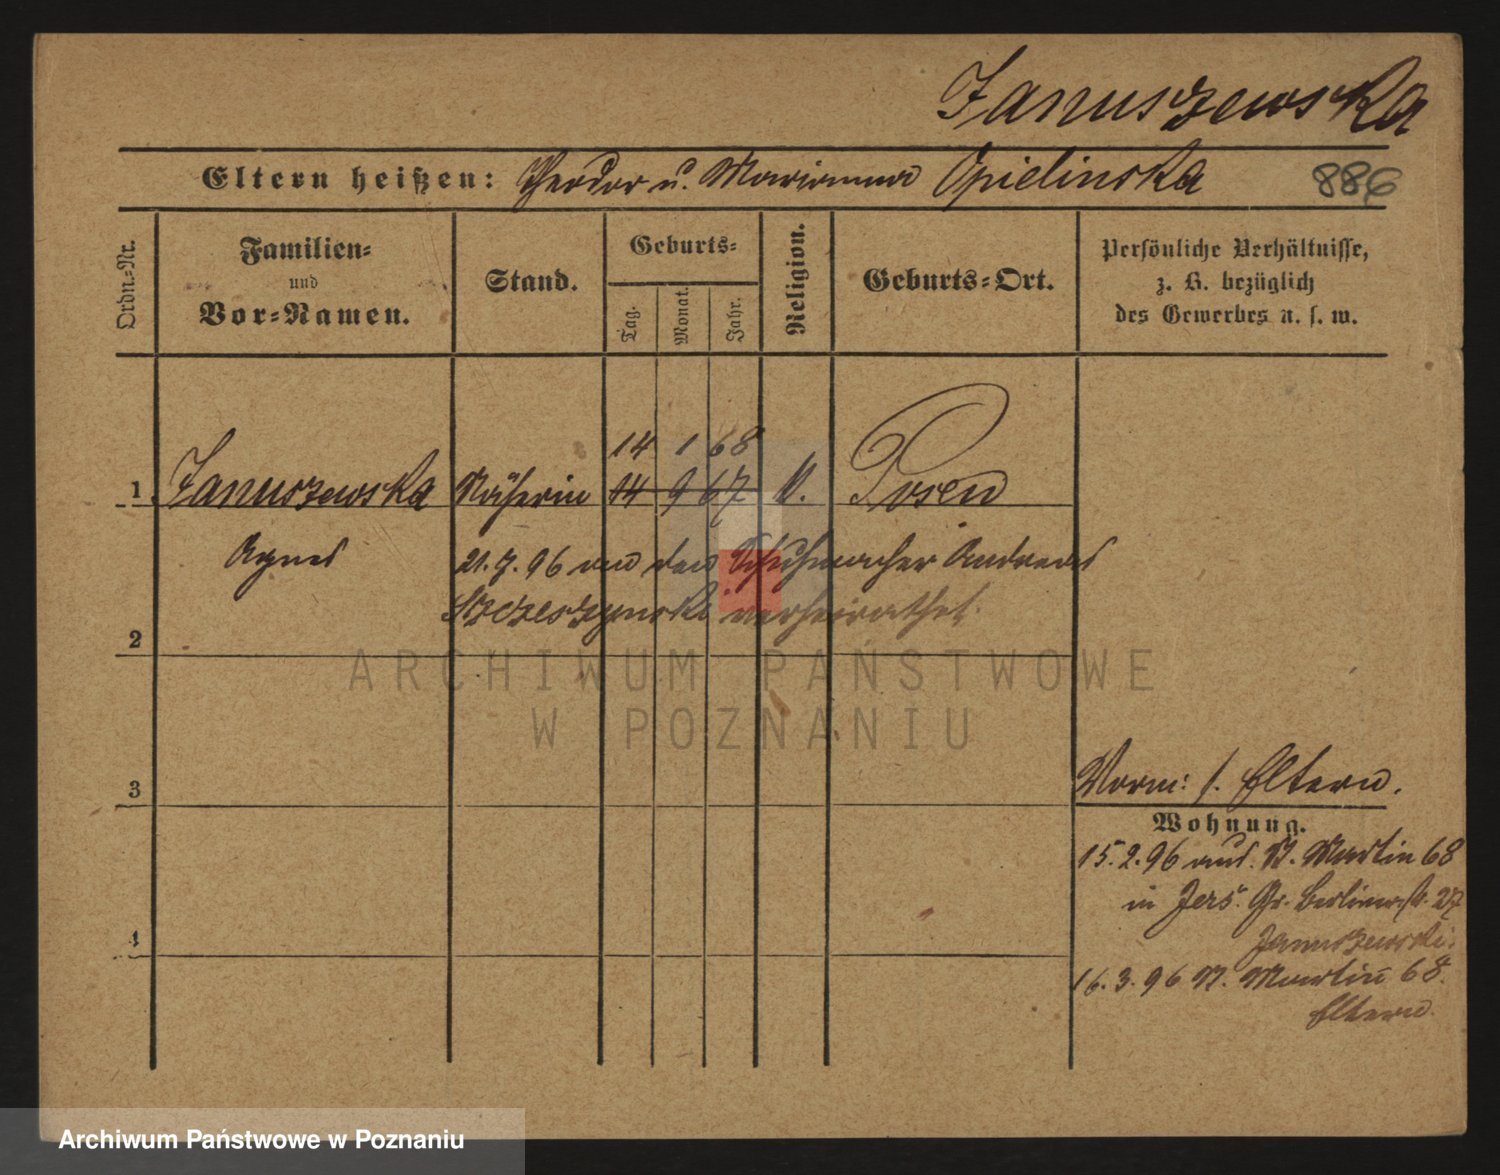 Januszewska
Eltern heißen: Theodor u. Marianna Opielinska 886
Ordn.-Nr.
Familien-
und
Vor-Namen.
Stand.
Geburts-
Tag.
Monat.
Jahr.
Religion.
Geburts-Ort.
Persönliche Verhältnisse,
z. B. bezüglich
des Gewerbes u. s. w.
14 1 68
1 Januszewska Näherin 14 9 67 k. Posen
Agnes
21.7.96 an den Schuhmacher Andreas
Szczeszynski verheirathet.
2
3
4
Vorm: s. Eltern.
Wohnung.
15.2.96 aus. St. Martin 68
in Jers. Gr. Berlinerstr. 27
Januszewski.
16.3.96 St. Martin 68.
Eltern.
ARCHIWUM PAŃSTWOWE
W POZNANIU
Archiwum Państwowe w Poznaniu